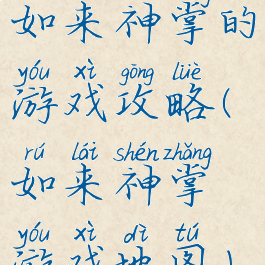 如来神掌的
yóu xì gōng lüè
游戏攻略(
rú lái shén zhǎng
如来神掌
yóu xì dì tú
游戏地图)